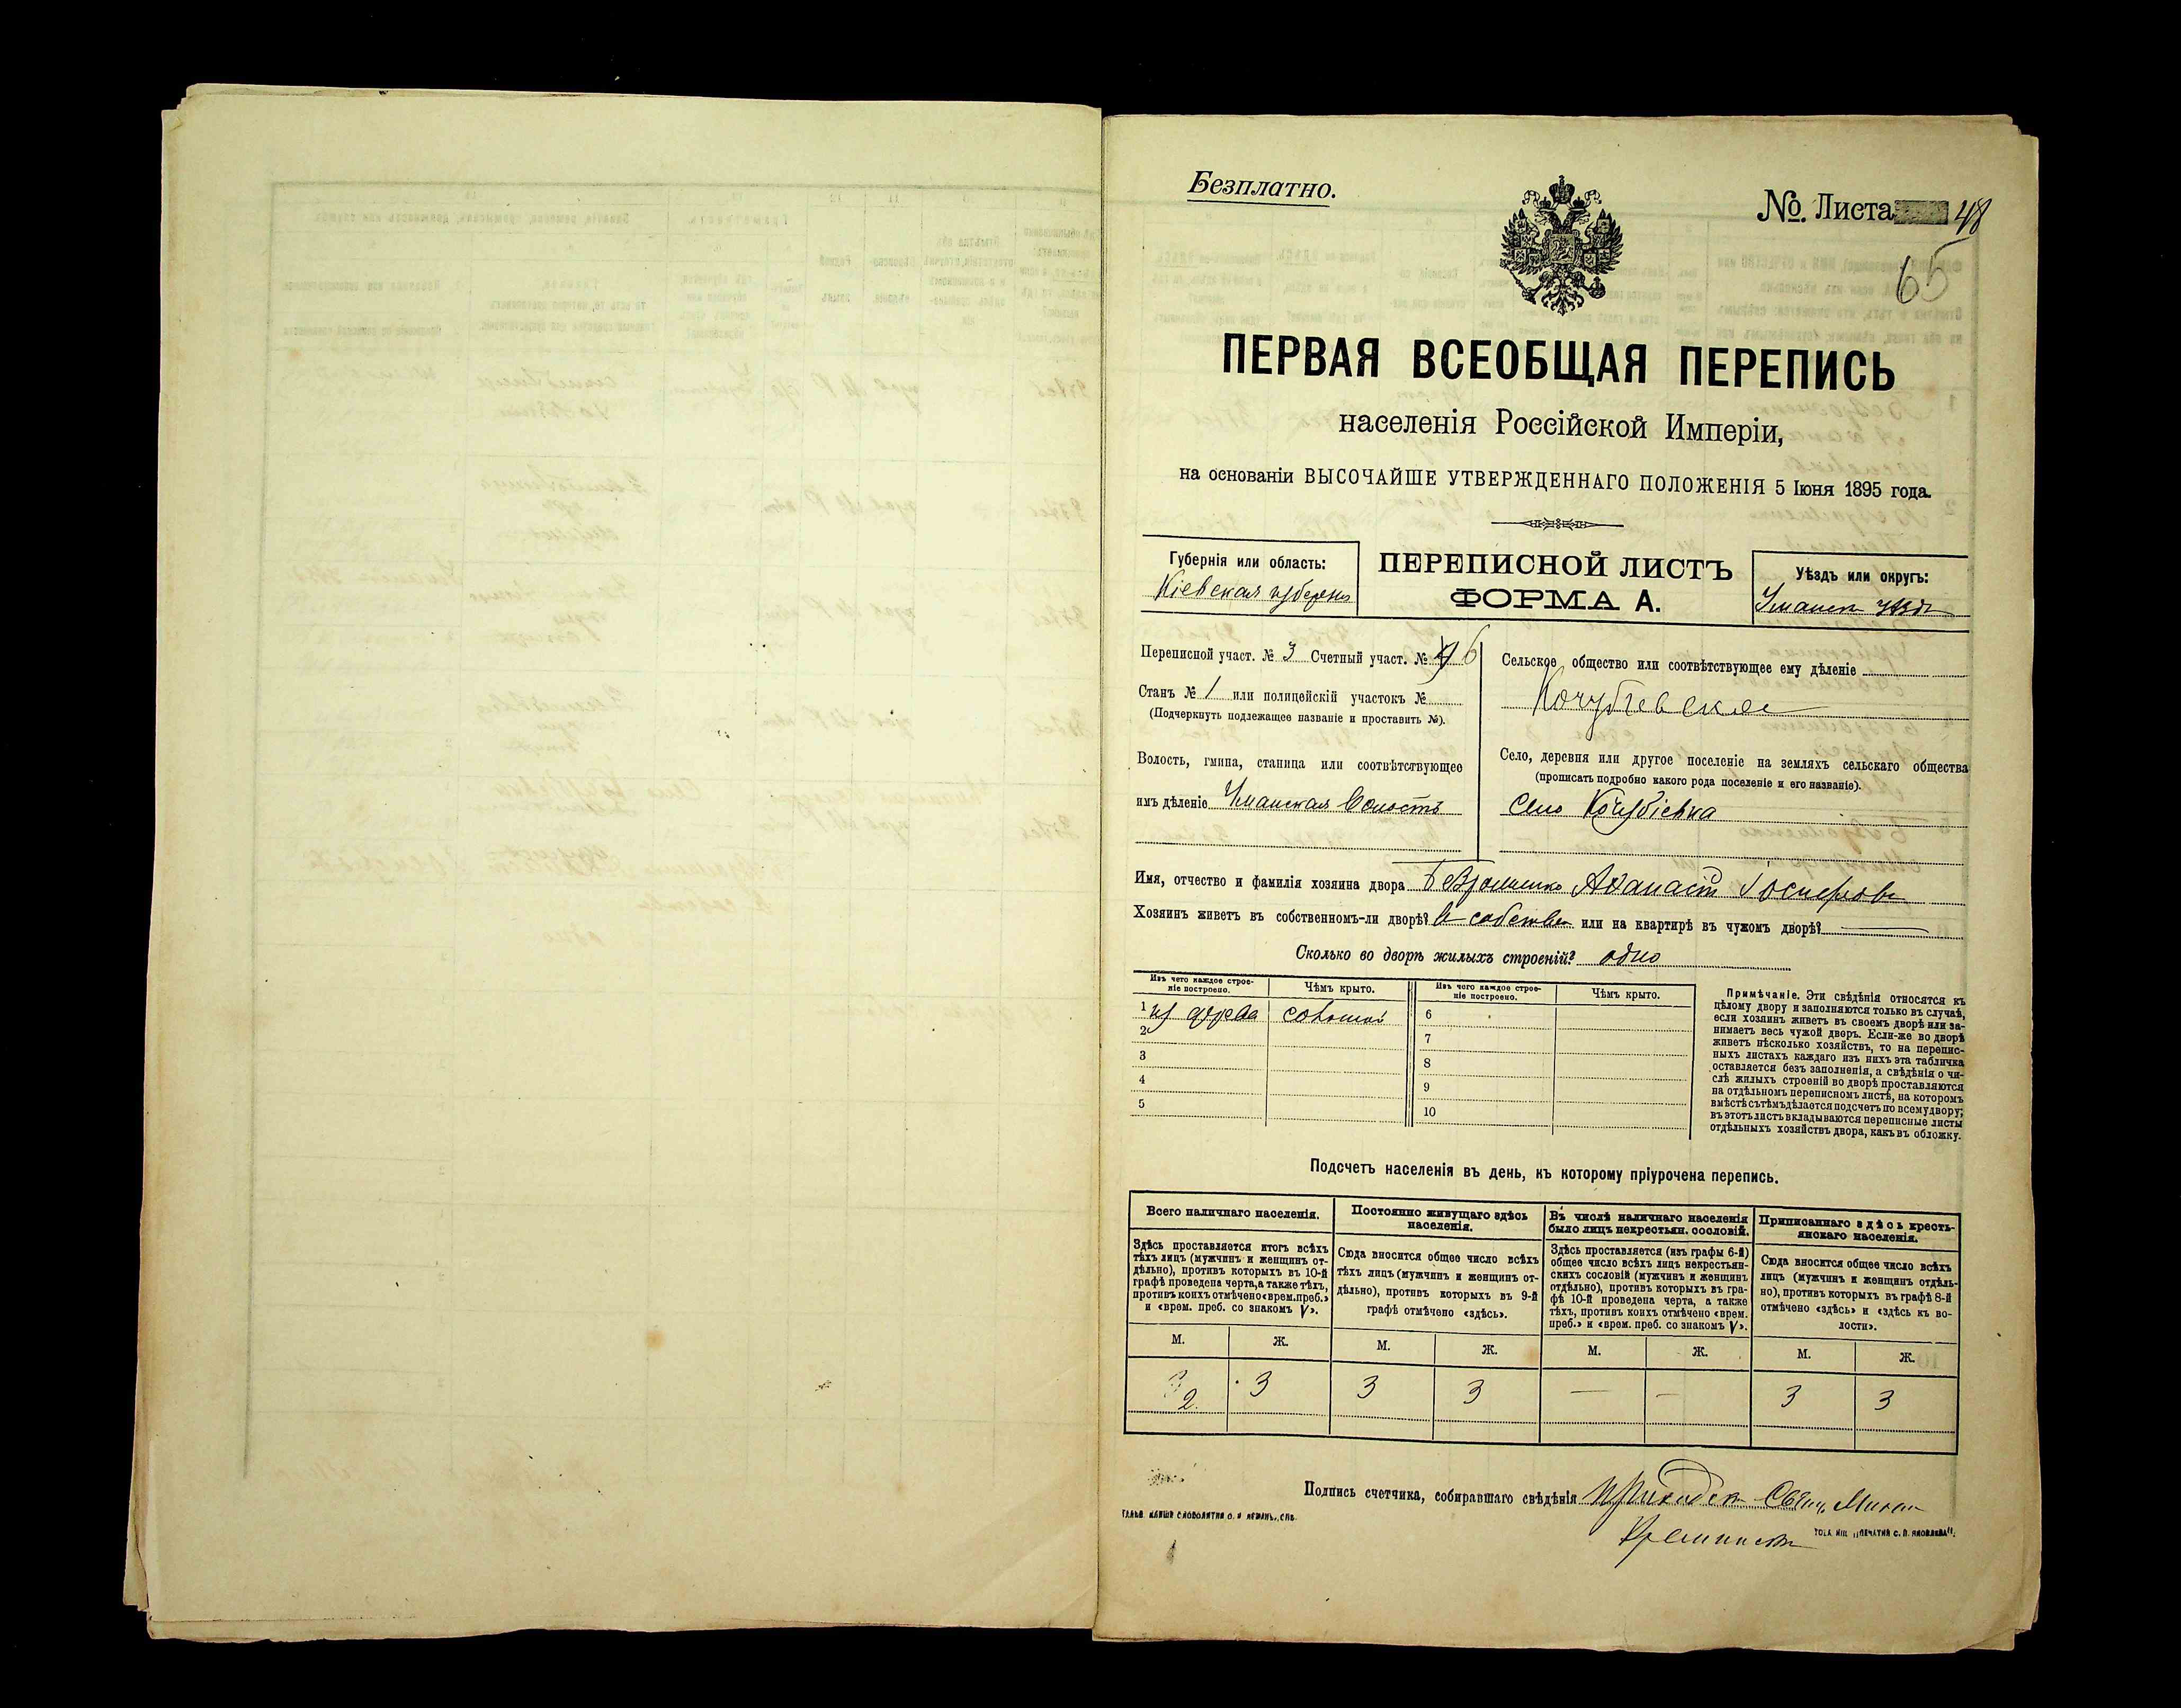 Безплатно.
№ Листа 48
65
ПЕРВАЯ ВСЕОБЩАЯ ПЕРЕПИСЬ
населенія Россійской Имперіи,
на основаніи ВЫСОЧАЙШЕ УТВЕРЖДЕННАГО ПОЛОЖЕНІЯ 5 Іюня 1895 года.
Губернія или область:
Кіевская губернія
ПЕРЕПИСНОЙ ЛИСТЪ
ФОРМА А.
Уѣздъ или округъ:
Уманск уѣзд
Переписной участ. № 3 Счетный участ. № 6
Станъ № 1 или полицейскій участокъ №
(Подчеркнуть подлежащее названіе и проставить №).
Волость, гмина, станица или соотвѣтствующее
имъ дѣленіе Уманская волость
Сельское общество или соотвѣтствующее ему дѣленіе
Кочубіевское
Село, деревня или другое поселеніе на земляхъ сельскаго общества
(прописать подробно какого рода поселеніе и его названіе).
Село Кочубіевка
Имя, отчество и фамилія хозяина двора Афанасій Іосифовъ
Хозяинъ живетъ въ собственномъ-ли дворѣ? въ собствен или на квартирѣ въ чужомъ дворѣ?
Сколько во дворѣ жилыхъ строеній? одно
Изъ чего каждое строе-
ніе построено.
Чѣмъ крыто.
Изъ чего каждое строе-
ніе построено.
Чѣмъ крыто.
1 из дерева соломой
2
3
4
5
6
7
8
9
10
Примѣчаніе. Эти свѣдѣнія относятся къ
цѣлому двору и заполняются только въ случаѣ,
если хозяинъ живетъ въ своемъ дворѣ или за-
нимаетъ весь чужой дворъ. Если-же во дворѣ
живетъ нѣсколько хозяйствъ, то на перепис-
ныхъ листахъ каждаго изъ нихъ эта табличка
оставляется безъ заполненія, а свѣдѣнія о чи-
слѣ жилыхъ строеній во дворѣ проставляются
на отдѣльномъ переписномъ листѣ, на которомъ
вмѣстѣ съ тѣмъ дѣлается подсчетъ по всему двору;
въ этотъ листъ вкладываются переписные листы
отдѣльныхъ хозяйствъ двора, какъ въ обложку.
Подсчетъ населенія въ день, къ которому пріурочена перепись.
Всего наличнаго населенія.
Здѣсь проставляется итогъ всѣхъ
тѣхъ лицъ (мужчинъ и женщинъ от-
дѣльно), противъ которыхъ въ 10-й
графѣ проведена черта, а также тѣхъ,
противъ коихъ отмѣчено «врем. преб.»
и «врем. преб. со знакомъ V».
Постоянно живущаго здѣсь
населенія.
Сюда вносится общее число всѣхъ
тѣхъ лицъ (мужчинъ и женщинъ от-
дѣльно), противъ которыхъ въ 9-й
графѣ отмѣчено «здѣсь».
Въ числѣ наличнаго населенія
было лицъ некрестьян. сословій.
Здѣсь проставляется (изъ графы 6-й)
общее число всѣхъ лицъ некрестьян-
скихъ сословій (мужчинъ и женщинъ
отдѣльно), противъ которыхъ въ гра-
фѣ 10-й проведена черта, а также
тѣхъ, противъ коихъ отмѣчено «врем.
преб.» и «врем. преб. со знакомъ V».
Приписаннаго здѣсь кресть-
янскаго населенія.
Сюда вносится общее число всѣхъ
лицъ (мужчинъ и женщинъ отдѣль-
но), противъ которыхъ въ графѣ 8-й
отмѣчено «здѣсь» и «здѣсь къ во-
лости».
М. Ж. М. Ж. М. Ж. М. Ж.
2 3 3 3 — — 3 3
Подпись счетчика, собиравшаго свѣдѣнія